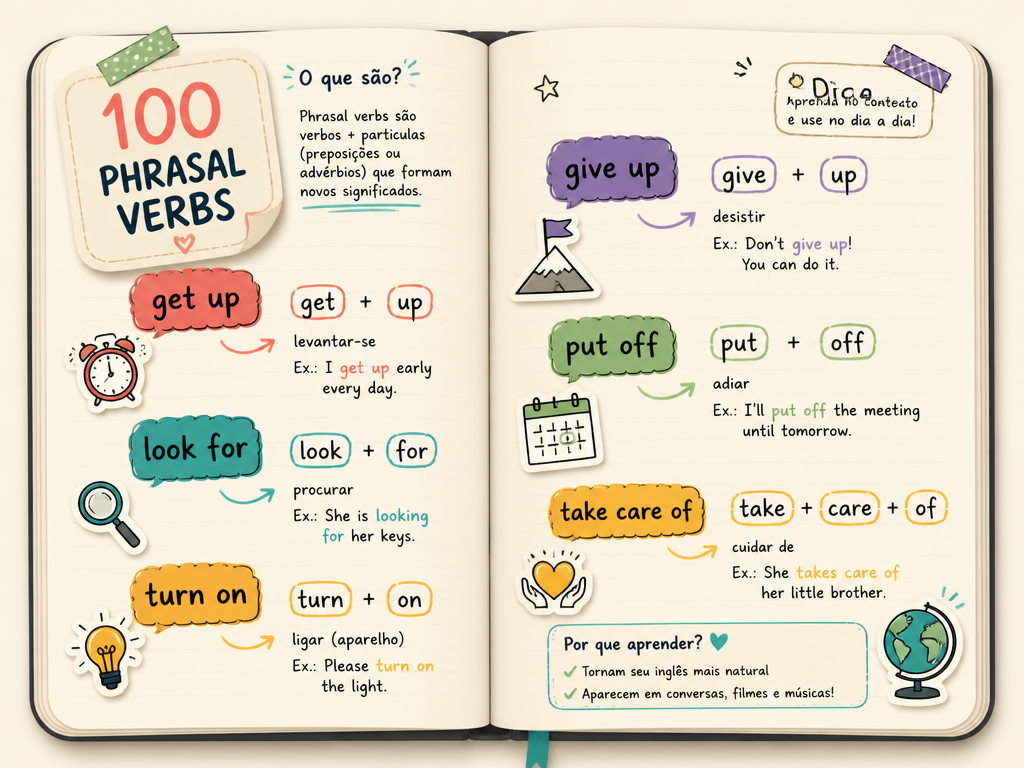 100
PHRASAL
VERBS
O que são?
Phrasal verbs são
verbos + partículas
(preposições ou
advérbios) que formam
novos significados.
get up
get + up
levantar-se
Ex.: I get up early
every day.
look for
look + for
procurar
Ex.: She is looking
for her keys.
turn on
turn + on
ligar (aparelho)
Ex.: Please turn on
the light.
Dica
Aprenda no contexto
e use no dia a dia!
give up
give + up
desistir
Ex.: Don't give up!
You can do it.
put off
put + off
adiar
Ex.: I'll put off the meeting
until tomorrow.
take care of
take + care + of
cuidar de
Ex.: She takes care of
her little brother.
Por que aprender?
✓ Tornam seu inglês mais natural
✓ Aparecem em conversas, filmes e músicas!